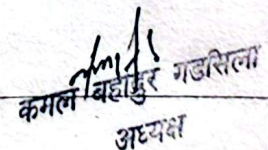 कमल बहादुर गडसिला
अध्यक्ष